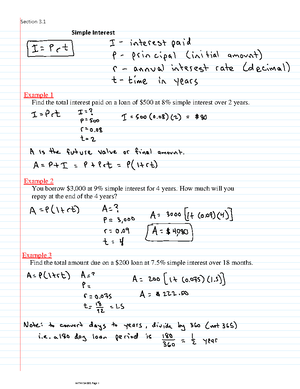 Section 3.1
Simple Interest
I = Prt
I - interest paid
P - principal (initial amount)
r - annual interest rate (decimal)
t - time in years
Example 1
Find the total interest paid on a loan of $500 at 8% simple interest over 2 years.
I = Prt
I = ?
P = 500
r = 0.08
t = 2
I = 500 (0.08)(2) = $80
A is the future value or final amount.
A = P + I = P + Prt = P(1+rt)
Example 2
You borrow $3,000 at 9% simple interest for 4 years. How much will you
repay at the end of the 4 years?
A = P(1+rt)
A = ?
P = 3,000
r = 0.09
t = 4
A = 3000 [1 + (0.09)(4)]
A = $4080
Example 3
Find the total amount due on a $200 loan at 7.5% simple interest over 18 months.
A = P(1+rt)
A = ?
P =
r = 0.075
t = 18/12 = 1.5
A = 200 [1 + (0.075)(1.5)]
A = $222.50
Note: to convert days to years, divide by 360 (not 365)
i.e. a 180 day loan period is 180/360 = 1/2 year